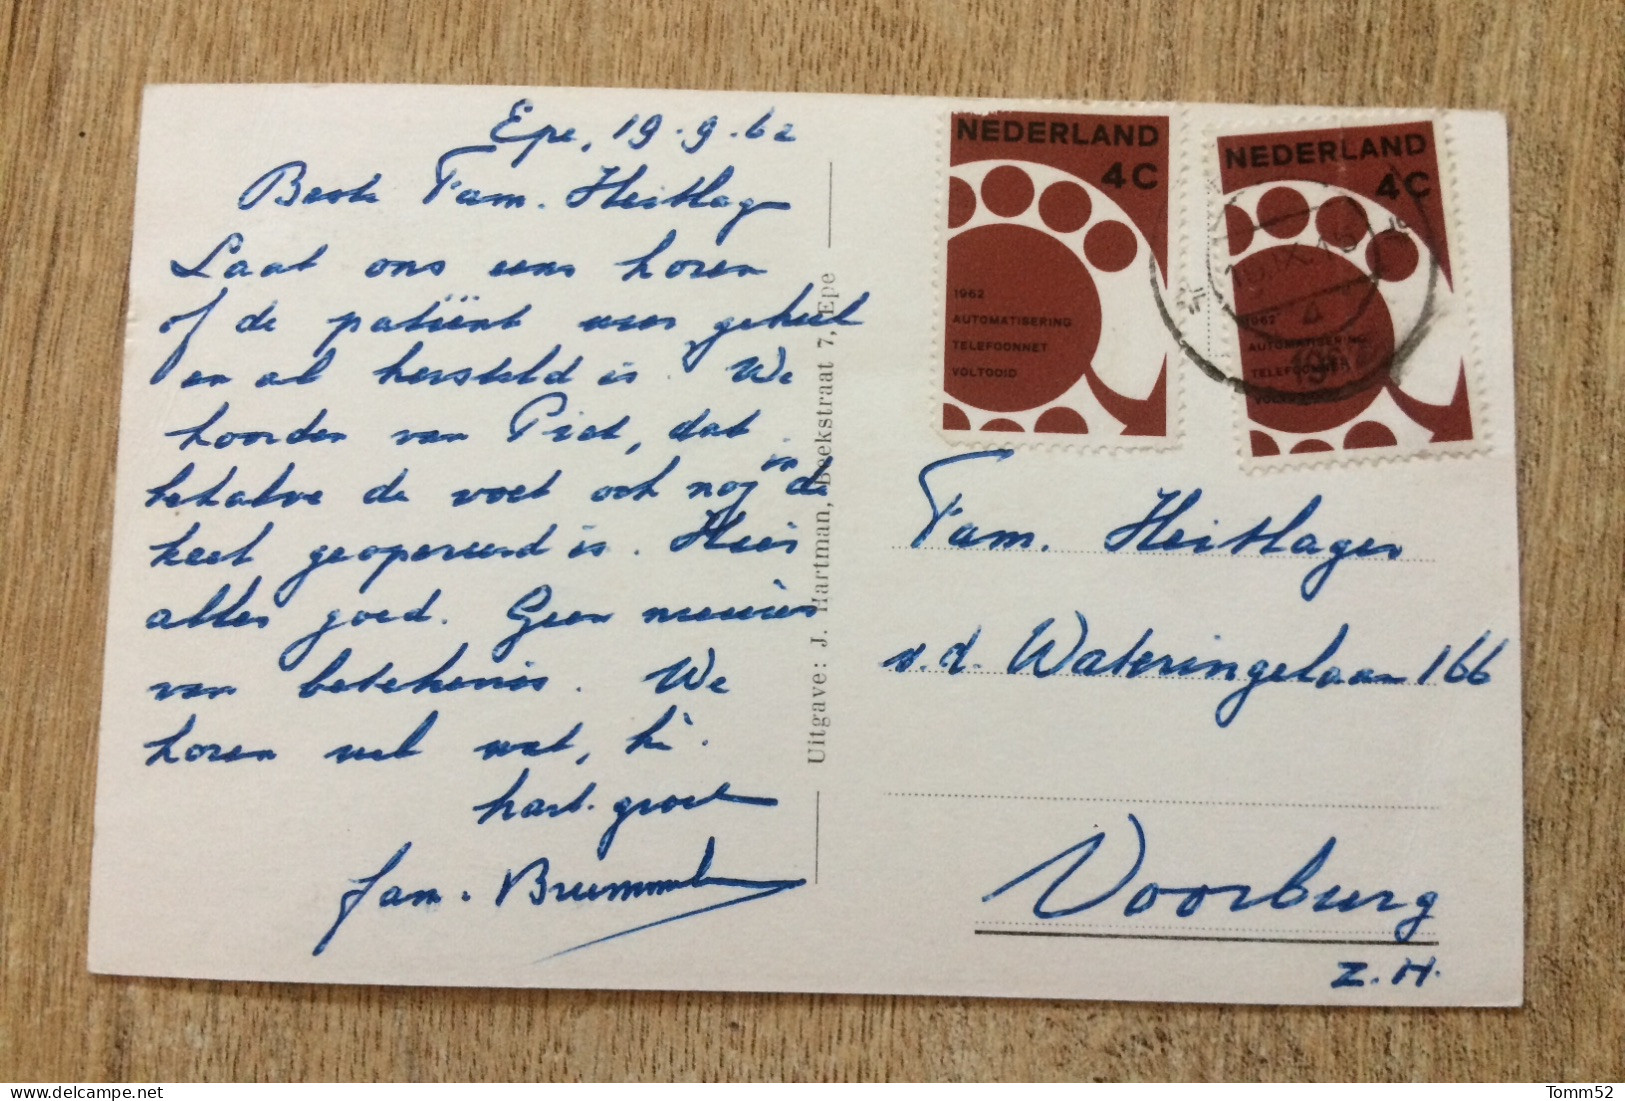 Epe, 19.9.62
Beste Fam. Heitlager
Laat ons eens horen
of de patiënt weer geheel
en al hersteld is. We
hoorden van Piet, dat
behalve de voet ook nog in de
keel geopereerd is. Hier
alles goed. Geen nieuws
van betekenis. We
horen wel wat, hè.
hart. groet
fam. Brummel
Uitgave: J. Hartman, Beekstraat 7, Epe
NEDERLAND
4C
1962
AUTOMATISERING
TELEFOONNET
VOLTOOID
NEDERLAND
4C
1962
AUTOMATISERING
TELEFOONNET
VOLTOOID
1962
Fam. Heitlager
v.d. Wateringelaan 166
Voorburg
Z.H.
Tomm52